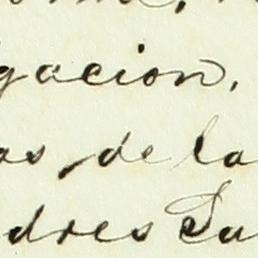 gacion,
os, de la
dres Su